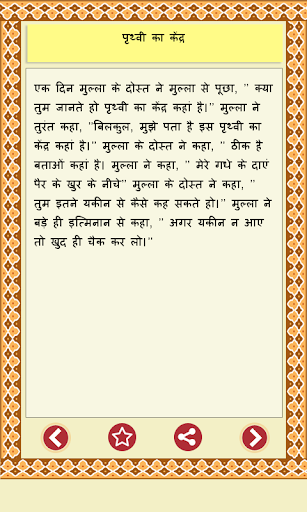 पृथ्वी का केंद्र
एक दिन मुल्ला के दोस्त ने मुल्ला से पूछा, " क्या
तुम जानते हो पृथ्वी का केंद्र कहां है।" मुल्ला ने
तुरंत कहा, "बिलकुल, मुझे पता है इस पृथ्वी का
केंद्र कहां है।" मुल्ला के दोस्त ने कहा, " ठीक है
बताओं कहां है। मुल्ला ने कहा, " मेरे गधे के दाएं
पैर के खुर के नीचे" मुल्ला के दोस्त ने कहा, "
तुम इतने यकीन से कैसे कह सकते हो।" मुल्ला ने
बड़े ही इत्मिनान से कहा, " अगर यकीन न आए
तो खुद ही चैक कर लो।"